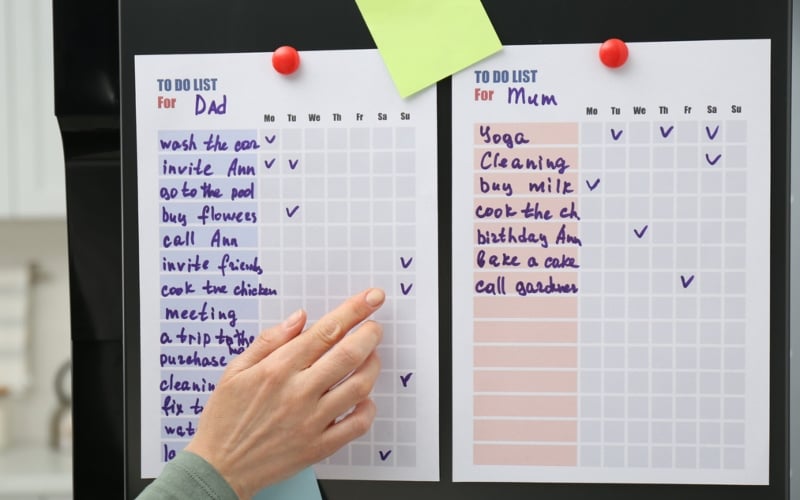 TO DO LIST
For Dad
Mo Tu We Th Fr Sa Su
wash the car
invite Ann
go to the pool
buy flowers
call Ann
invite friends
cook the chicken
meeting
a trip to the
purchase
cleanin
fix t
wat
la
TO DO LIST
For Mum
Mo Tu We Th Fr Sa Su
Yoga
Cleaning
buy milk
cook the ch
birthday Ann
bake a cake
call gardner